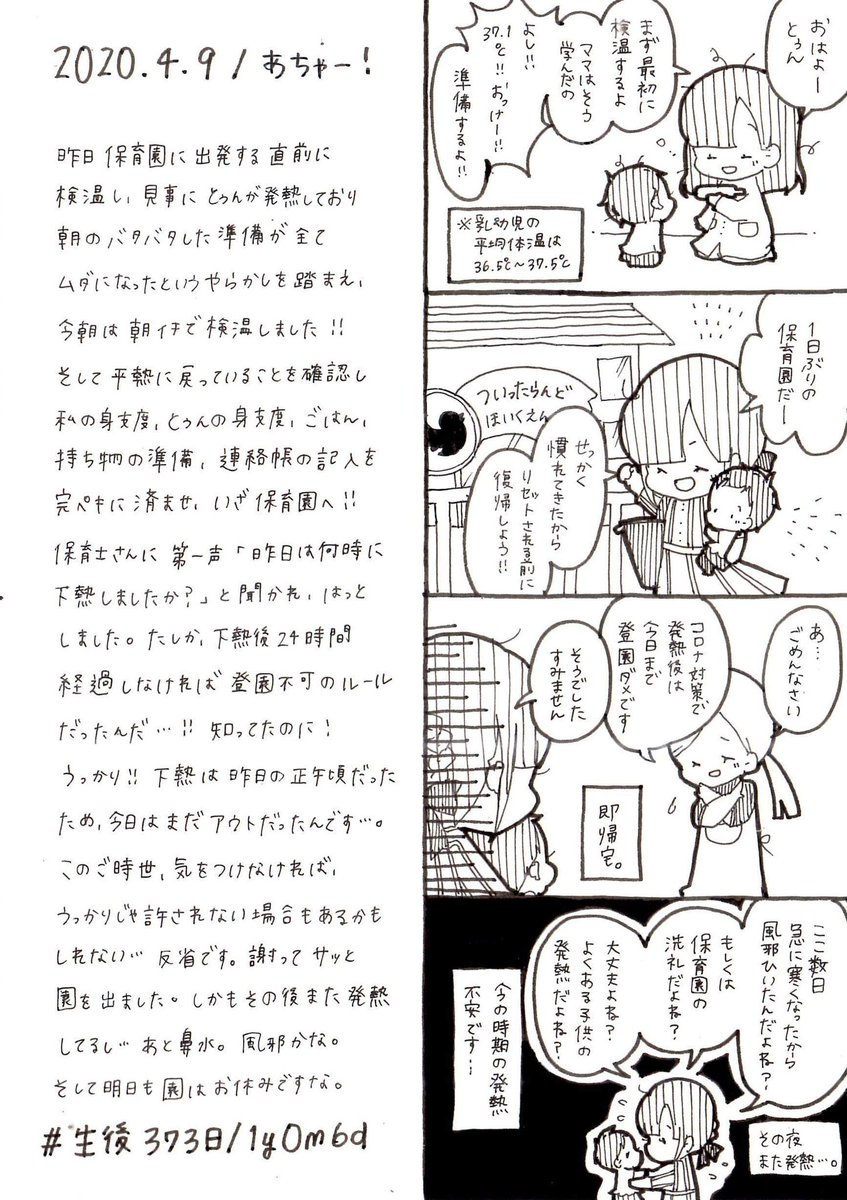 2020.4.9/あちゃー!
昨日保育園に出発する直前に
検温し、見事にとぅんが発熱しており
朝のバタバタした準備が全て
ムダになったというやらかしを踏まえ、
今朝は朝イチで検温しました!!
そして平熱に戻っていることを確認し
私の身支度、とぅんの身支度、ごはん、
持ち物の準備、連絡帳の記入を
完ペキに済ませ、いざ保育園へ!!
保育士さんに第一声「昨日は何時に
下熱しましたか?」と聞かれ、はっと
しました。たしか、下熱後24時間
経過しなければ登園不可のルール
だったんだ…!!知ってたのに!
うっかり!!下熱は昨日の正午頃だった
ため、今日はまだアウトだったんです…。
このご時世、気をつけなければ、
うっかりじゃ許されない場合もあるかも
しれない… 反省です。謝ってサッと
園を出ました。しかもその後また発熱
してるし… あと鼻水。風邪かな。
そして明日も園はお休みですな。
#生後373日/1y0m6d
おはよー
とぅん
まず最初に
検温するよ
ママはそう
学んだの
よし!!
37.1℃!!おっけー!!
準備するよ!!
※乳幼児の
平均体温は
36.5℃〜37.5℃
1日ぶりの
保育園だー
ついったらんど
ほいくえん
せっかく
慣れてきたから
リセットされる前に
復帰しよう!!
あ…
ごめんなさい
コロナ対策で
発熱後は
今日まで
登園ダメです
そうでした
すみません
即帰宅。
ここ数日
急に寒くなったから
風邪ひいたんだよね?
もしくは
保育園の
洗礼だよね?
大丈夫よね?
よくある子供の
発熱だよね?
今の時期の発熱
不安です…
その夜
また発熱…。